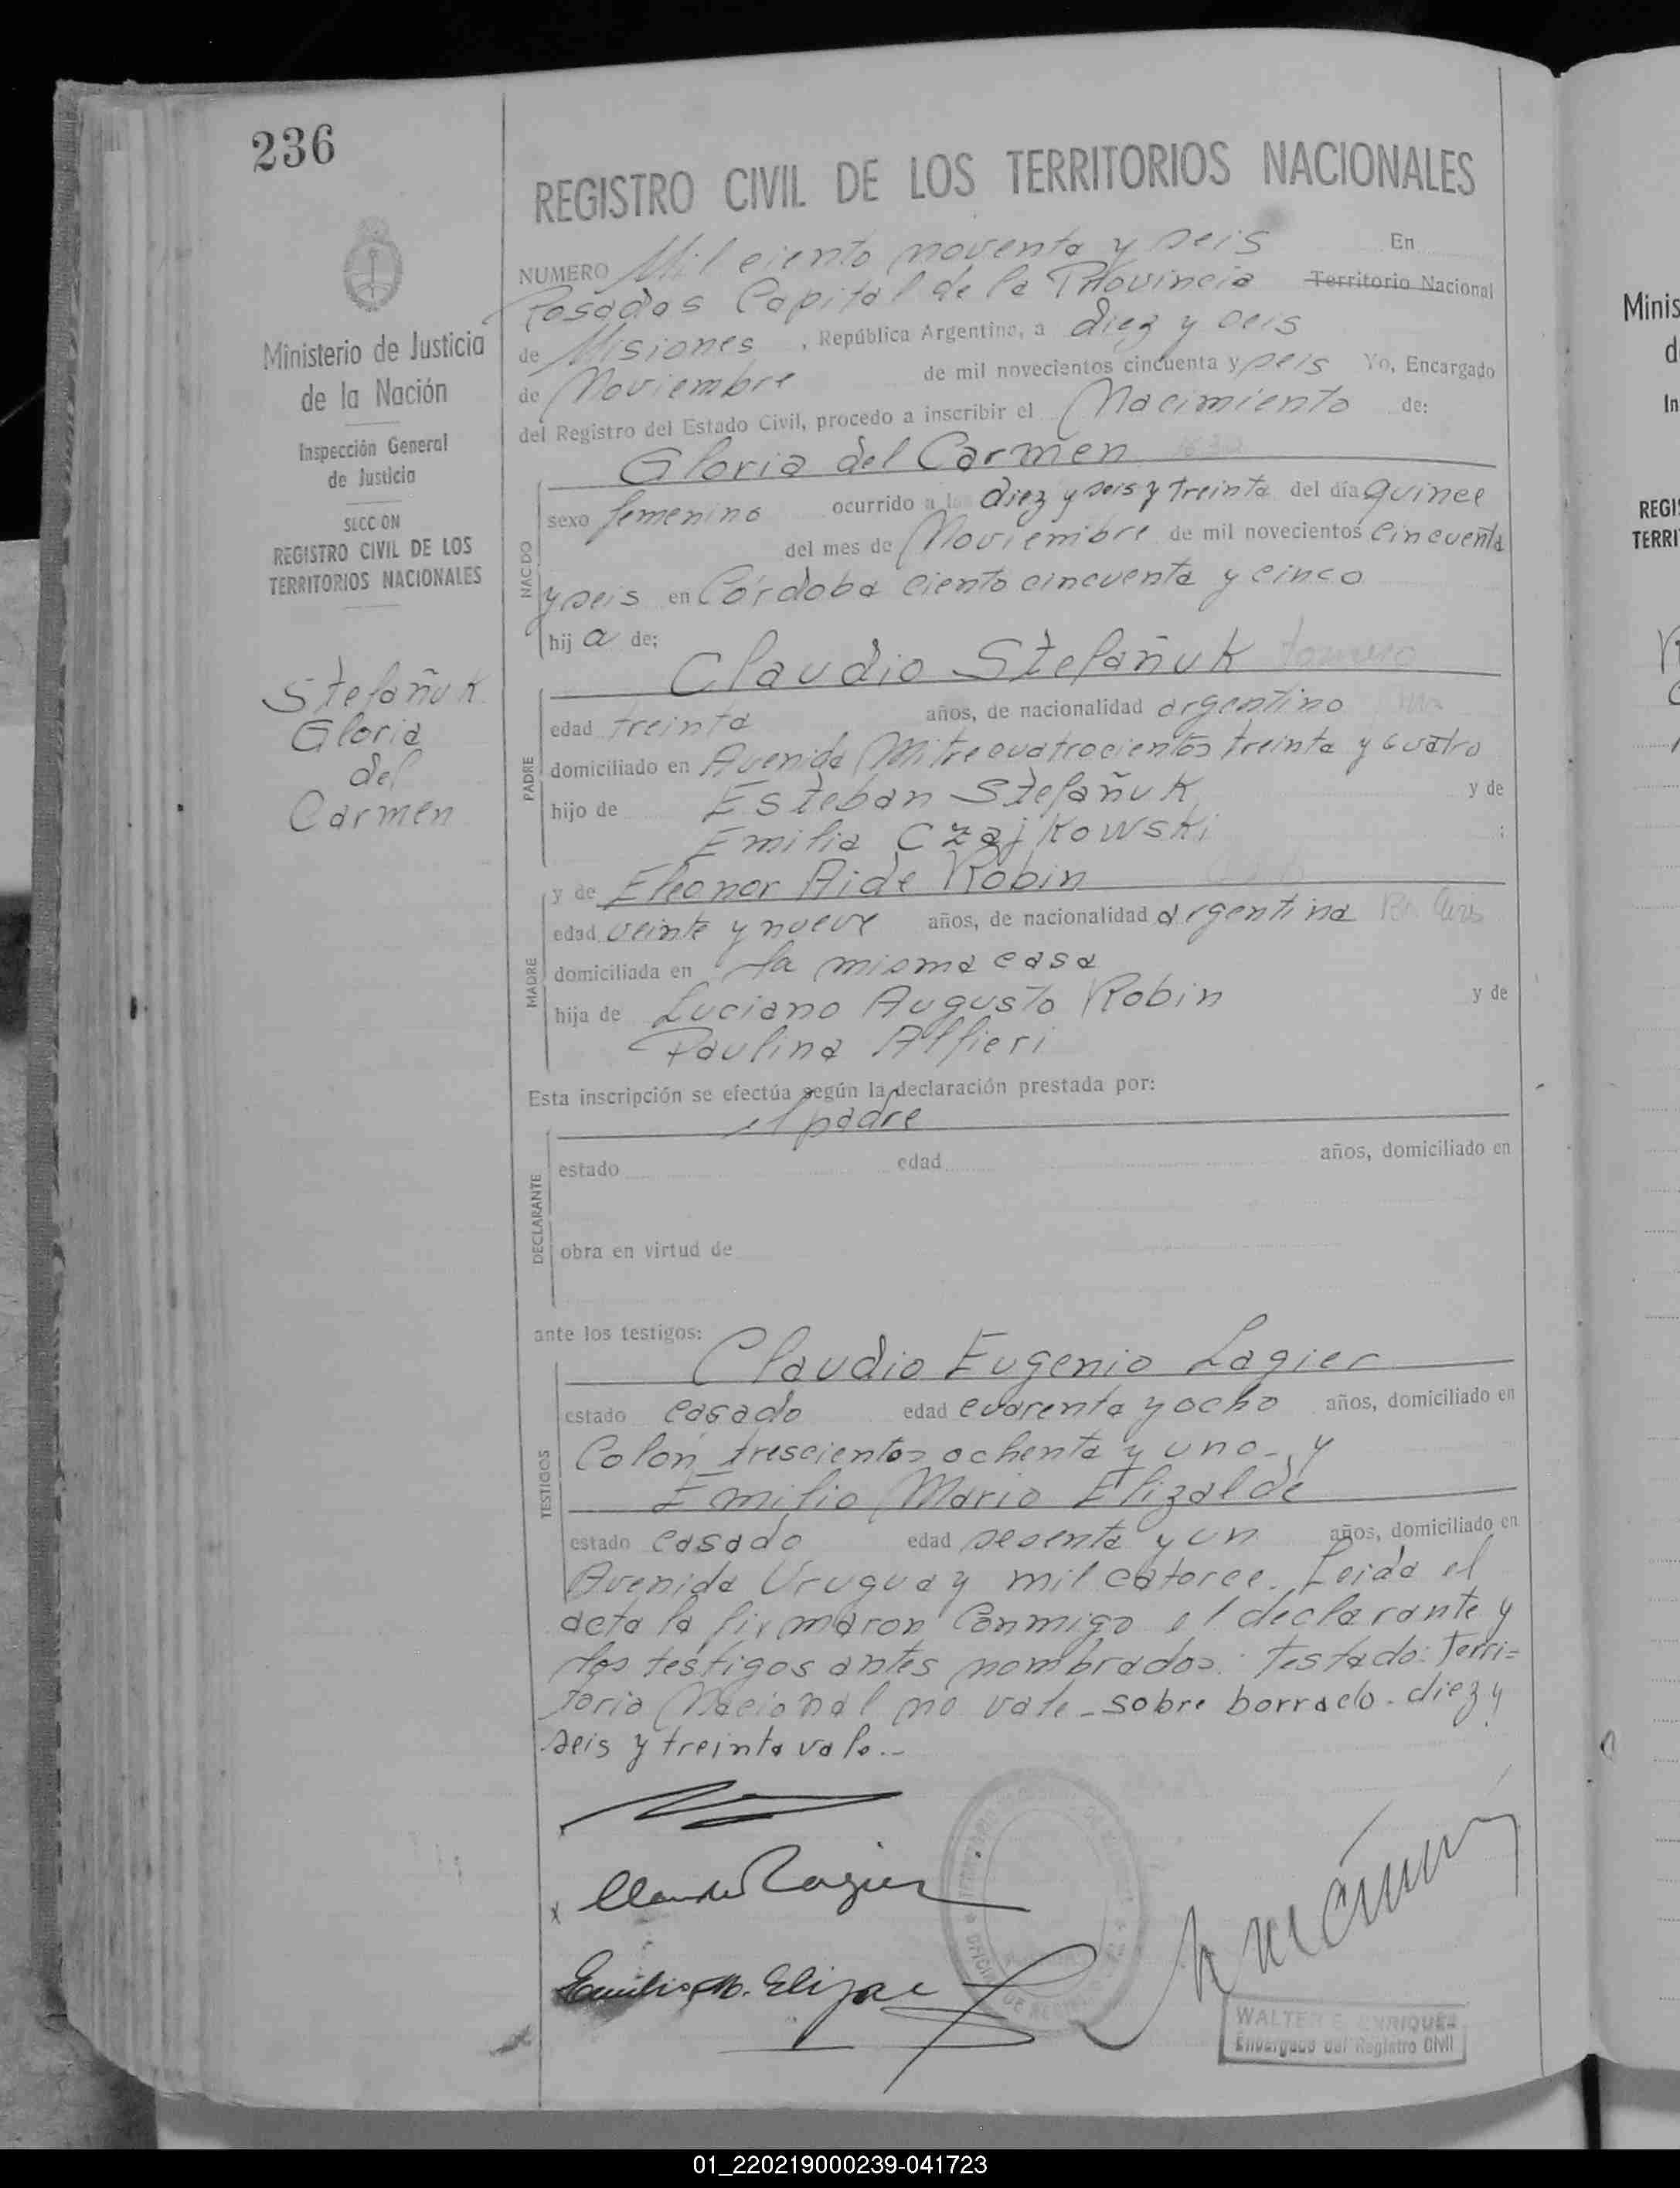 236
REGISTRO CIVIL DE LOS TERRITORIOS NACIONALES
NUMERO Mil ciento noventa y seis En
Posadas Capital de la Provincia Territorio Nacional
de Misiones, República Argentina, a diez y seis
de Noviembre de mil novecientos cincuenta y seis Yo, Encargado
del Registro del Estado Civil, procedo a inscribir el Nacimiento de:
Gloria del Carmen
sexo femenino ocurrido a las diez y seis y treinta del día quince
del mes de Noviembre de mil novecientos cincuenta
y seis en Córdoba ciento cincuenta y cinco
hij a de;
NACIDO
Claudio Stefañuk
edad treinta años, de nacionalidad argentino
domiciliado en Avenida Mitre cuatrocientos treinta y cuatro
hijo de Esteban Stefañuk y de
Emilia Czajkowski :
PADRE
y de Eleonor Aide Robin
edad veinte y nueve años, de nacionalidad argentina
domiciliada en la misma casa
hija de Luciano Augusto Robin y de
Paulina Alfieri
MADRE
Esta inscripción se efectúa según la declaración prestada por:
el padre
estado edad años, domiciliado en
obra en virtud de
DECLARANTE
ante los testigos:
Claudio Eugenio Lagier
estado casado edad cuarenta y ocho años, domiciliado en
Colón trescientos ochenta y uno - y
Emilio Mario Elizalde
estado casado edad sesenta y un años, domiciliado en
Avenida Uruguay mil catorce. Leida el
TESTIGOS
acta la firmaron conmigo el declarante y
los testigos antes nombrados. Testado: Terri=
torio Nacional no vale - sobre borrado - diez y
seis y treinta vale..-
x
x Claudio Lagier
Emilio M. Elizalde
WALTER E. ENRIQUEZ
Encargado del Registro Civil
Ministerio de Justicia
de la Nación
Inspección General
de Justicia
SECCION
REGISTRO CIVIL DE LOS
TERRITORIOS NACIONALES
Stefañuk
Gloria
del
Carmen
Minis
d
In
REGI
TERRI
01_220219000239-041723